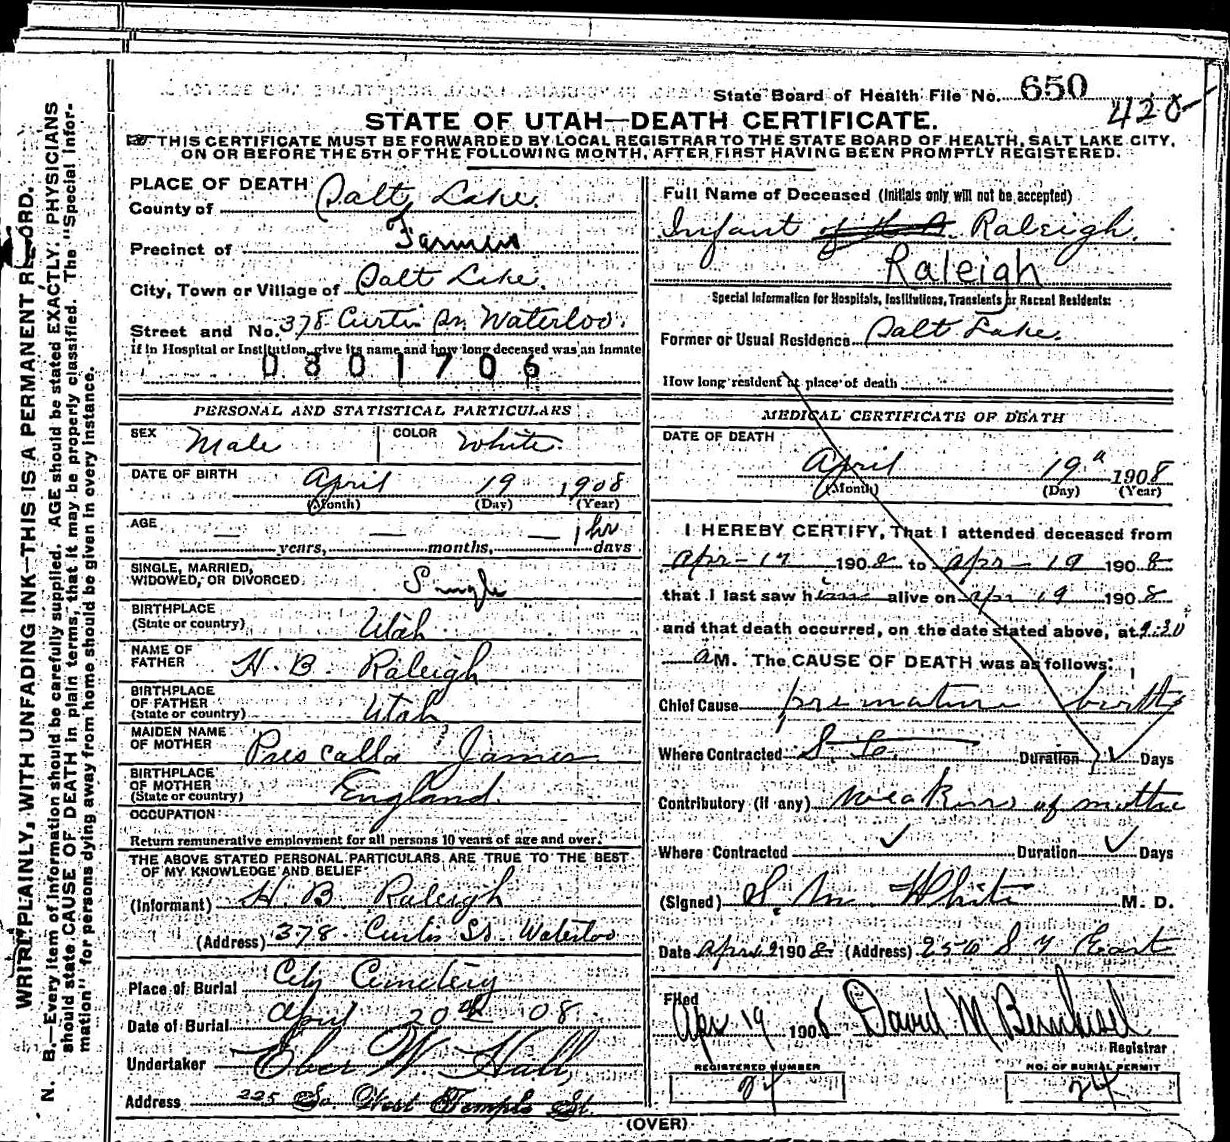 State Board of Health File No. 650
420-
STATE OF UTAH—DEATH CERTIFICATE.
THIS CERTIFICATE MUST BE FORWARDED BY LOCAL REGISTRAR TO THE STATE BOARD OF HEALTH, SALT LAKE CITY,
ON OR BEFORE THE 5TH OF THE FOLLOWING MONTH, AFTER FIRST HAVING BEEN PROMPTLY REGISTERED.
WRITE PLAINLY, WITH UNFADING INK—THIS IS A PERMANENT RECORD.
N. B.—Every item of information should be carefully supplied. AGE should be stated EXACTLY. PHYSICIANS
should state CAUSE OF DEATH in plain terms, that it may be properly classified. The "Special Infor-
mation" for persons dying away from home should be given in every instance.
PLACE OF DEATH
County of Salt Lake.
Precinct of Farmers
City, Town or Village of Salt Lake.
Street and No. 378 Curtis St. Waterloo.
If in Hospital or Institution, give its name and how long deceased was an inmate
0801706
PERSONAL AND STATISTICAL PARTICULARS
SEX Male COLOR White.
DATE OF BIRTH April 19 1908
(Month) (Day) (Year)
AGE — years, — months, — 1 hr days
SINGLE, MARRIED,
WIDOWED, OR DIVORCED Single
BIRTHPLACE
(State or country) Utah.
NAME OF
FATHER H. B. Raleigh
BIRTHPLACE
OF FATHER
(State or country) Utah
MAIDEN NAME
OF MOTHER Pres calla James
BIRTHPLACE
OF MOTHER
(State or country) England.
OCCUPATION
Return remunerative employment for all persons 10 years of age and over.
THE ABOVE STATED PERSONAL PARTICULARS ARE TRUE TO THE BEST
OF MY KNOWLEDGE AND BELIEF
(Informant) H. B. Raleigh
(Address) 378 Curtis St. Waterloo
Place of Burial City Cemetery
Date of Burial April 20th 08
Undertaker Eber W. Hall,
Address 225 So. West Temple St.
Full Name of Deceased (Initials only will not be accepted)
Infant Raleigh.
Raleigh
Special Information for Hospitals, Institutions, Transients or Recent Residents:
Former or Usual Residence Salt Lake.
How long resident at place of death
MEDICAL CERTIFICATE OF DEATH
DATE OF DEATH
April 19 a 1908
(Month) (Day) (Year)
I HEREBY CERTIFY, That I attended deceased from
Apr-19 1908 to Apr-19 1908
that I last saw him alive on Apr 19 1908
and that death occurred, on the date stated above, at 2:30
a M. The CAUSE OF DEATH was as follows:
Chief Cause premature birth
Where Contracted S. L. C. Duration ✓ Days
Contributory (if any) weakness of mother
Where Contracted ✓ Duration ✓ Days
(Signed) S. M. White M. D.
Date Apr 19 1908 (Address) East
Filed
Apr 19 1908 David M Bernhisel
Registrar
REGISTERED NUMBER
24
NO. OF BURIAL PERMIT
24
(OVER)